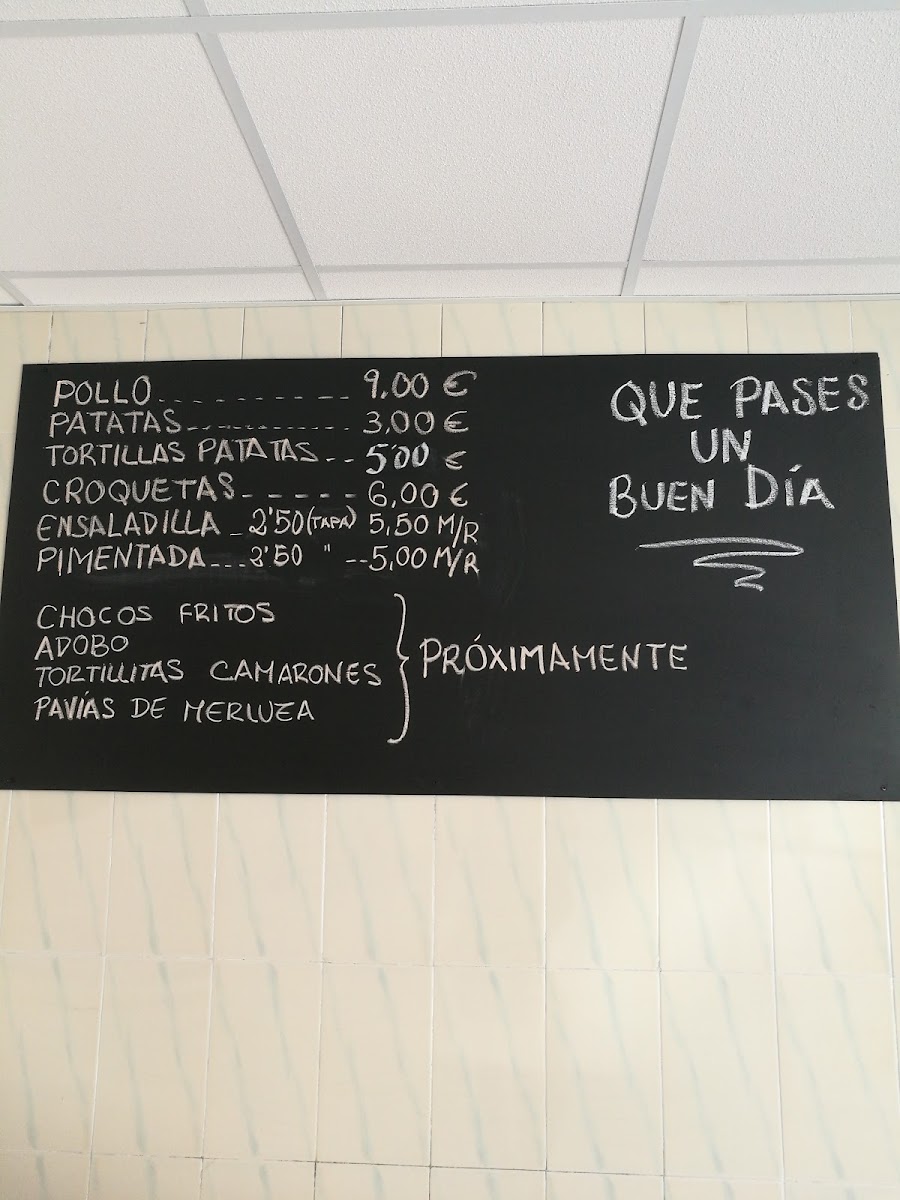 POLLO---------- 9,00 €
PATATAS----------- 3,00 €
TORTILLAS PATATAS--- 5'00 €
CROQUETAS------ 6,00 €
ENSALADILLA - 2'50 (TAPA) 5,50 M/R
PIMENTADA--- 2'50 " --5,00 M/R
CHOCOS FRITOS
ADOBO
TORTILLITAS CAMARONES
PAVÍAS DE MERLUZA
PRÓXIMAMENTE
QUE PASES
UN
BUEN DÍA